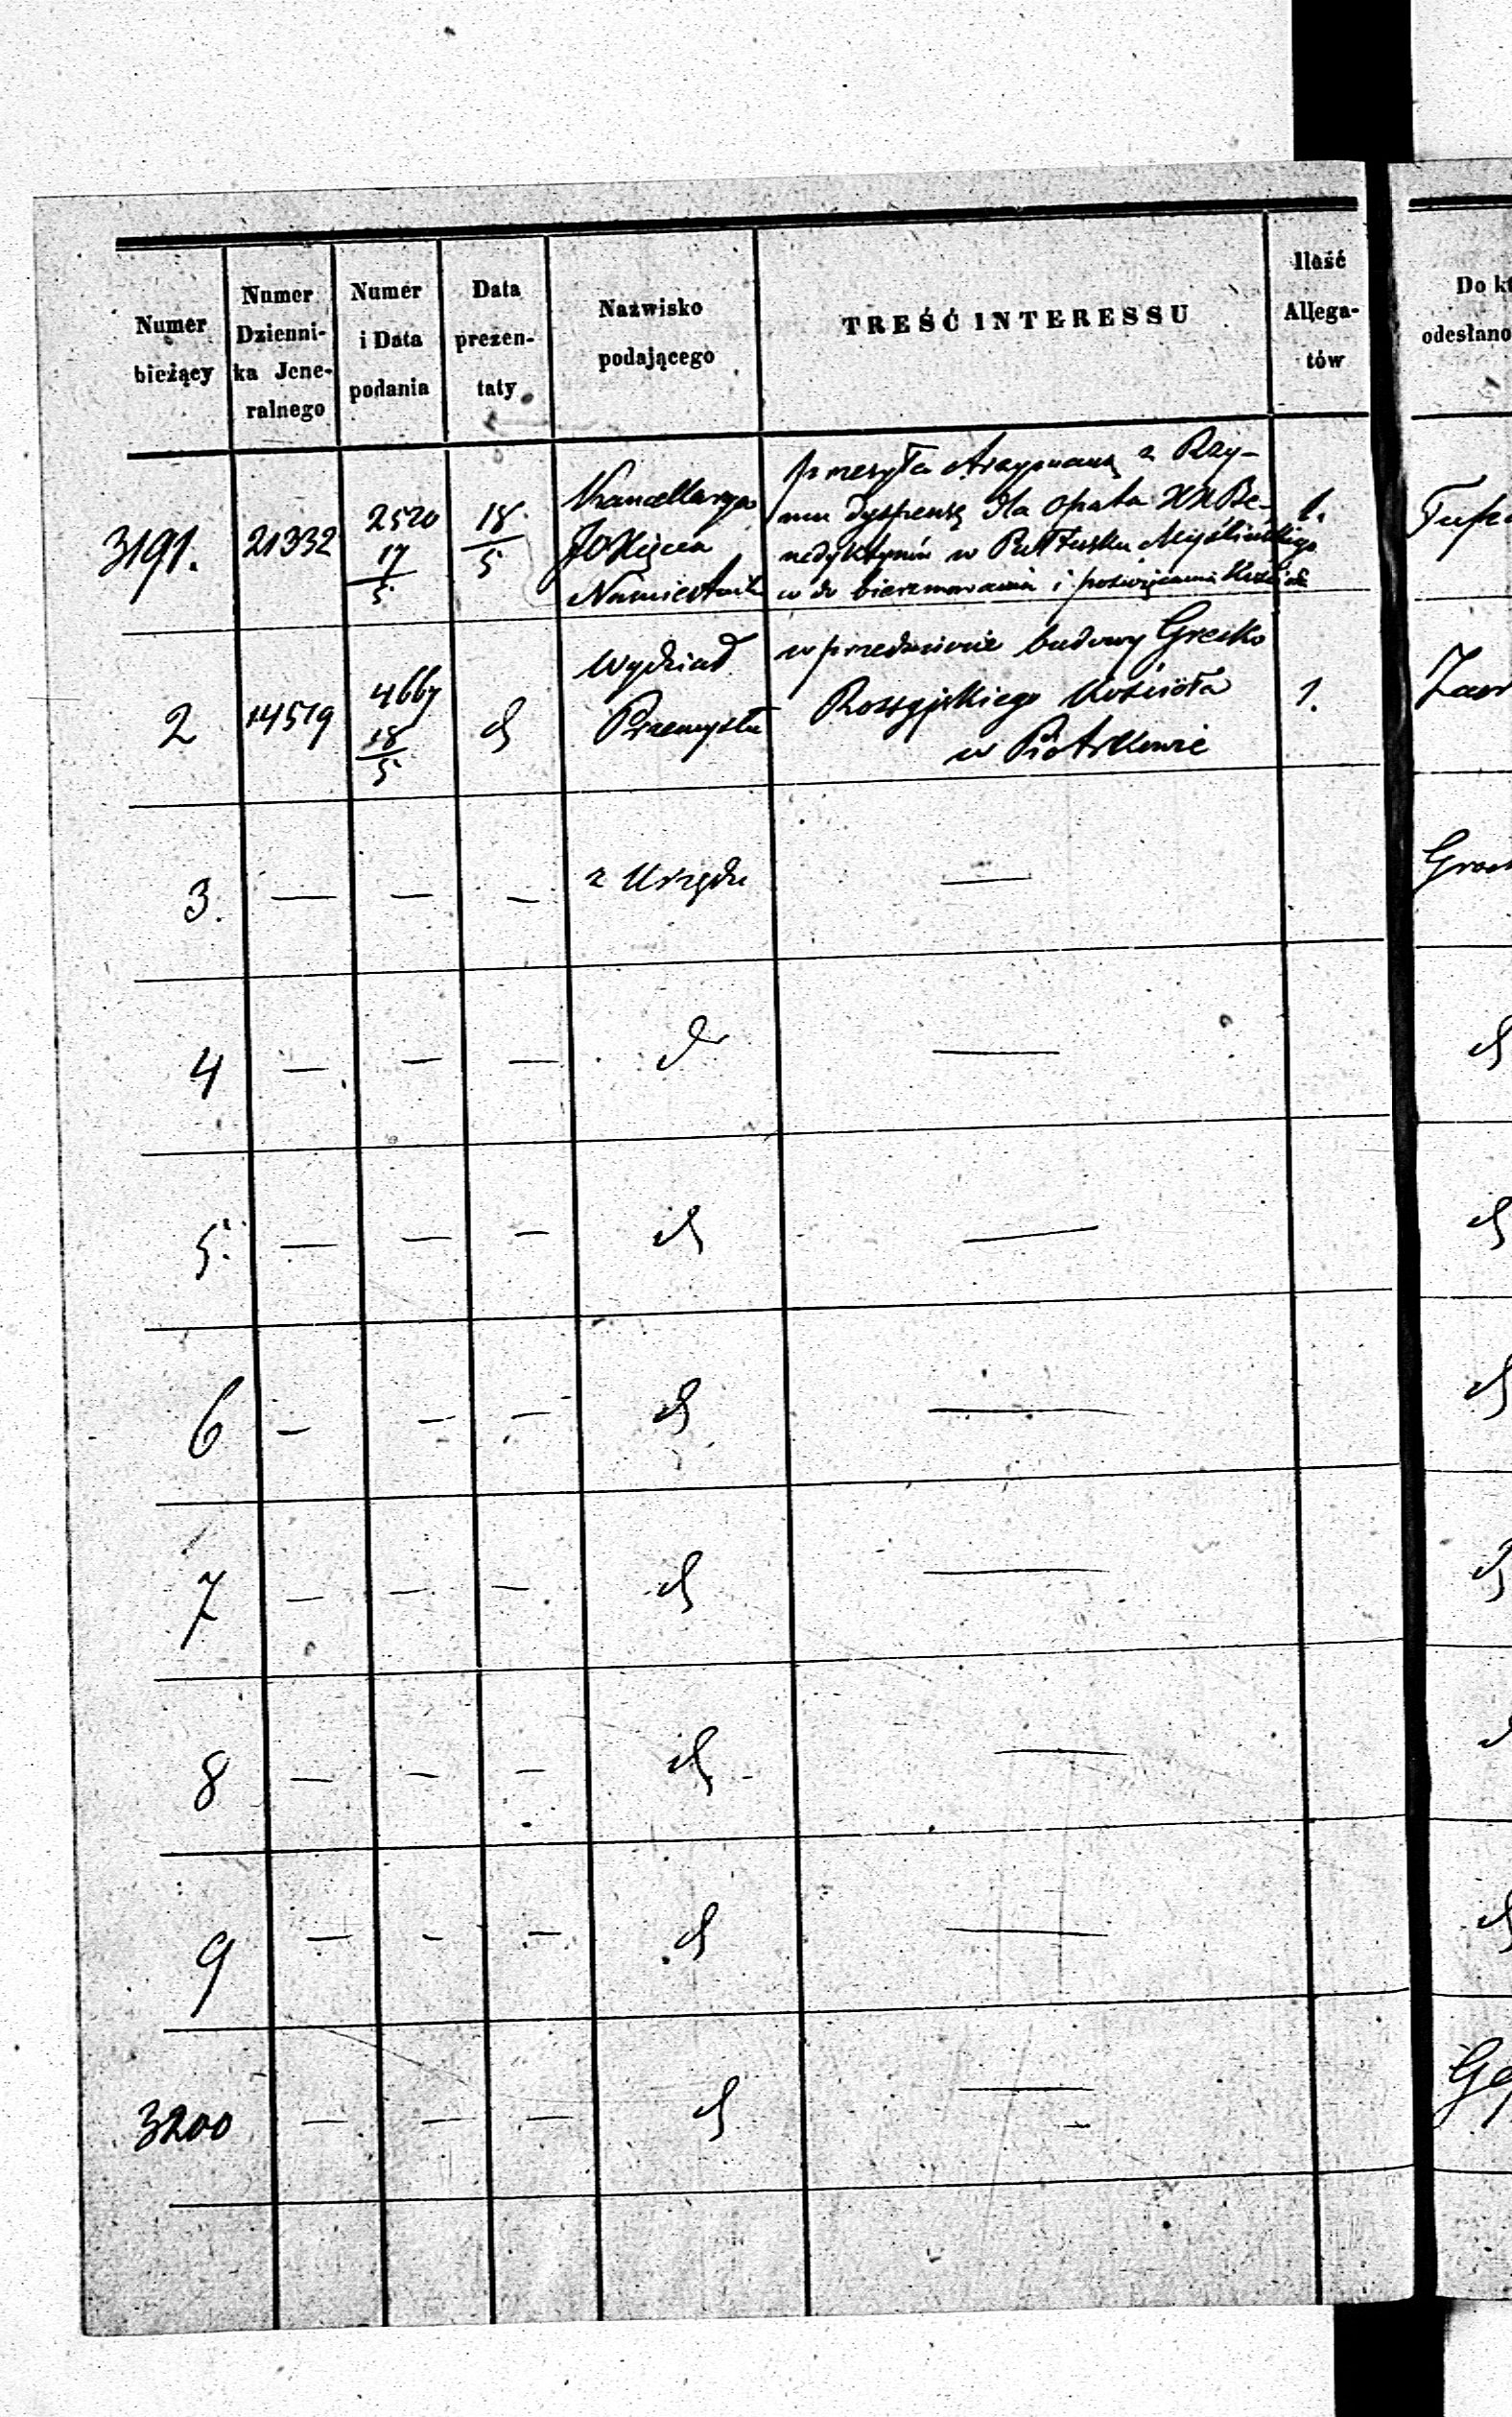 Numer bieżący
Numer Dzienni-ka Jene-ralnego
Numer i Data podania
Data prezen-taty
Nazwisko podającego
TREŚĆ INTERESSU
Ilość Allega-tów
Do kt
odesłano
3191.
21332
2520
17
5
18
5
Kancellarya
JO Xięcia
Namiestnika
przesyła otrzymaną z Rzy-
mu dyspensę dla Opata XX Be-
nedyktynów w Pułtusku
w do bierzmowania i poświęcania
1.
2
14519
18
5
d
Wydział
Przemysłu
w przedmiocie budowy Grecko
Rossyjskiego Kościoła
w Piotrkowie
1.
3.
—
—
—
z Urzędu
—
4
—
—
—
do
—
d
5.
—
—
—
d
—
d
6
—
—
—
d
—
d
7
—
—
—
d
—
d
8
—
—
—
d
—
9
—
—
—
d
—
d
3200
—
—
—
d
—